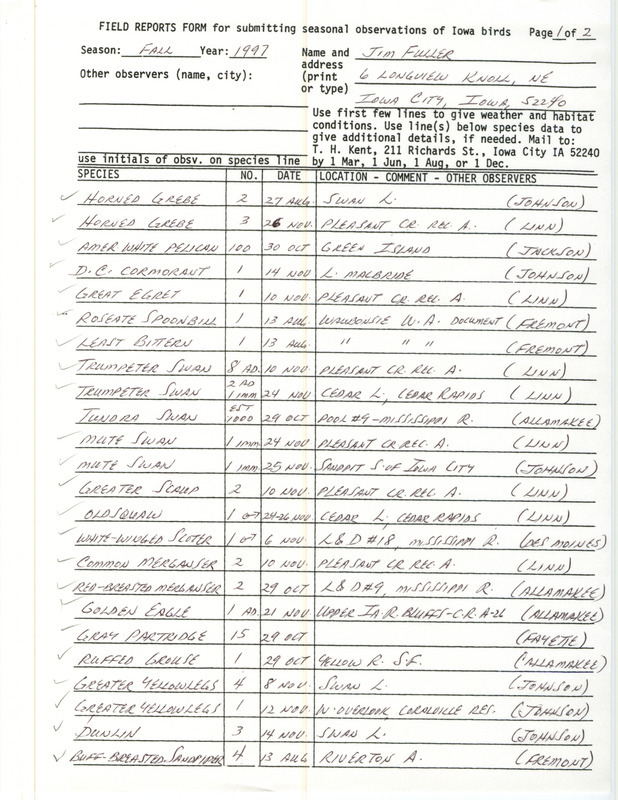 FIELD REPORTS FORM for submitting seasonal observations of Iowa birds Page 1 of 2
Season: FALL Year: 1997 Name and address (print or type) JIM FULLER
Other observers (name, city): 6 LONGVIEW KNOLL, NE
IOWA CITY, IOWA, 52240
Use first few lines to give weather and habitat
conditions. Use line(s) below species data to
give additional details, if needed. Mail to:
T. H. Kent, 211 Richards St., Iowa City IA 52240
use initials of obsv. on species line by 1 Mar, 1 Jun, 1 Aug, or 1 Dec.
SPECIES NO. DATE LOCATION - COMMENT - OTHER OBSERVERS
✓ HORNED GREBE 2 27 AUG SWAN L. (JOHNSON)
✓ HORNED GREBE 3 26 NOV. PLEASANT CR. REC. A. (LINN)
✓ AMER WHITE PELICAN 100 30 OCT GREEN ISLAND (JACKSON)
✓ D.C. CORMORANT 1 14 NOV L. MACBRIDE (JOHNSON)
✓ GREAT EGRET 1 10 NOV. PLEASANT CR. REC. A. (LINN)
✓ ROSEATE SPOONBILL 1 13 AUG. WAUBONSIE W.A. DOCUMENT (FREMONT)
✓ LEAST BITTERN 1 13 AUG. " " " (FREMONT)
✓ TRUMPETER SWAN 8 AD. 10 NOV PLEASANT CR. REC. A. (LINN)
✓ TRUMPETER SWAN 2 AD 1 imm 24 NOV CEDAR L, CEDAR RAPIDS (LINN)
✓ TUNDRA SWAN EST 1000 29 OCT POOL #9 - MISSISSIPPI R. (ALLAMAKEE)
✓ MUTE SWAN 1 imm 24 NOV. PLEASANT CR. REC. A. (LINN)
✓ MUTE SWAN 1 imm 25 NOV. SANDPIT S. OF IOWA CITY (JOHNSON)
✓ GREATER SCAUP 2 10 NOV. PLEASANT CR. REC. A. (LINN)
✓ OLDSQUAW 1 ♂ 24-26 NOV. CEDAR L, CEDAR RAPIDS (LINN)
✓ WHITE-WINGED SCOTER 1 ♂ 6 NOV. L&D #18, MISSISSIPPI R. (DES MOINES)
✓ COMMON MERGANSER 2 10 NOV. PLEASANT CR. REC. A. (LINN)
✓ RED-BREASTED MERGANSER 2 29 OCT L&D #9, MISSISSIPPI R. (ALLAMAKEE)
✓ GOLDEN EAGLE 1 AD. 21 NOV UPPER IA. R. BLUFFS-C.R. A-26 (ALLAMAKEE)
✓ GRAY PARTRIDGE 15 29 OCT (FAYETTE)
✓ RUFFED GROUSE 1 29 OCT YELLOW R. S.F. (ALLAMAKEE)
✓ GREATER YELLOWLEGS 4 8 NOV. SWAN L. (JOHNSON)
✓ GREATER YELLOWLEGS 1 12 NOV. W. OVERLOOK, CORALVILLE RES. (JOHNSON)
✓ DUNLIN 3 14 NOV. SWAN L. (JOHNSON)
✓ BUFF-BREASTED SANDPIPER 4 13 AUG RIVERTON A. (FREMONT)